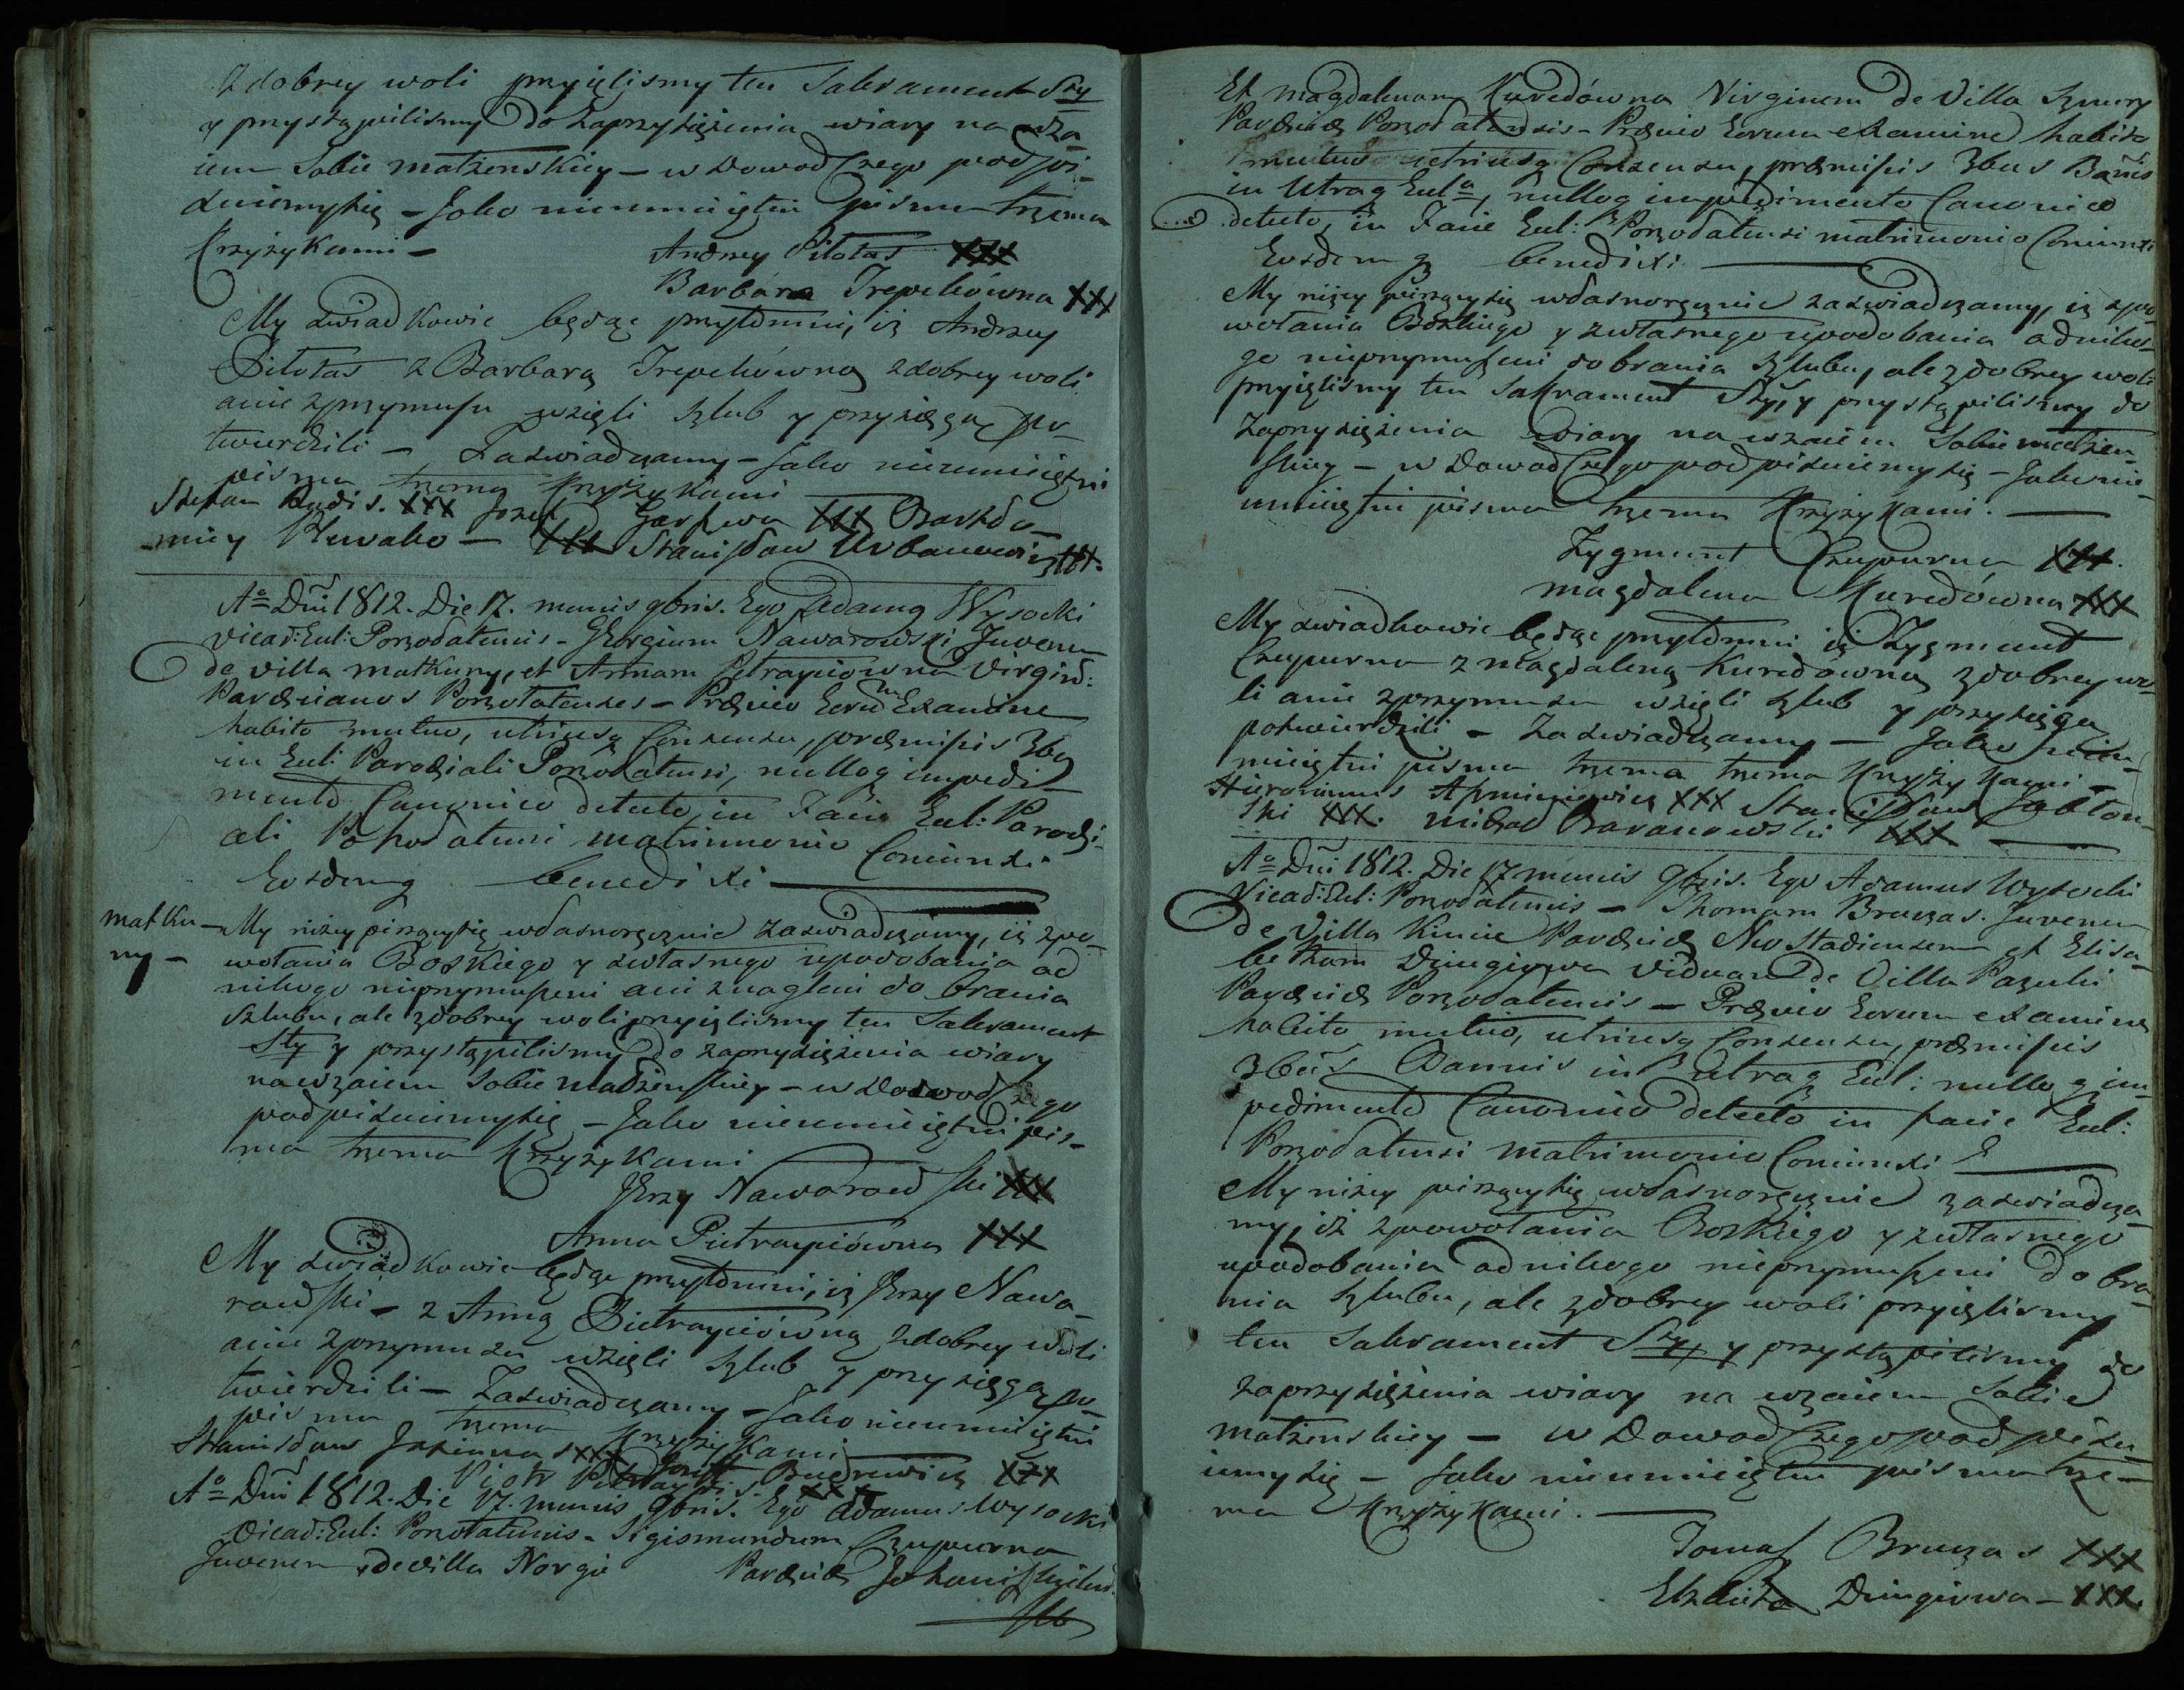 Zdobrey woli przyięlismy ten Sakrament Sty
y przystąpilismy do Zaprzysiężenia wiary na wza
iem Sobie matżenskiey – w Dowod Czego podpi-
suiemysię – Jako nieumieiętni pisma trzema
Krzyżykami –
Andrzey Pilotas XXX
Barbara Trepekówna XXX
My swiadkowie będąc przytomni, iż Andrzey
Pilotas z Barbarą Trepekówną zdobrey woli
anie zprzymusu wzięli szlub y przysięgą po-
twierdzili – Zaswiadczamy – Jako nieumieiętni
pisma trzema krzyżykami
Stefan XXX Jozef XXX Bartło-
miey – XXX Stanisław Urbanowicz XXX.
Aº Dni 1812. Die 17. mensis 9bris. Ego Adamus Wysocki
Vicad: Eccl: Ponodatensis – Georgium Nawarowski Juvenem
de villa matkuny, et Annam Petrayciowna Virgin:
Parœcianos Ponotatenses – Prævio Eorum Examine
habito mutuo, utriusq Consensu, præmissis 3bq
in Eccl: Parochiali Ponodatensi, nulloq impedi-
mento Canonico detecto, in Facie Eccl: Parochi-
ali Ponodatensi matrimonio Coniunxi
Eosdemq benedixi
matku-
ny –
My niżey piszącysię własnoręcznie zaswiadczamy, iż zpo-
wołania Boskiego y zwłasnego upodobania od
nikogo nieprzymuszeni ani znagleni do brania
Szlubu, ale zdobrey woli przyięlismy ten Sakrament
Sty y przystąpilismy do zaprzysiężenia wiary
nawzaiem Sobie małżenskiey – w Dowod Czego
podpisuiemysię – Jako nieumieiętni pis-
ma trzema krzyżykami
Jerzy Nawarowski XXX
Anna Pietrayciówna XXX
My swiadkowie będąc przytomni, iż Jerzy Nawa-
rowski – z Anną Pietrayciówną zdobrey woli
anie zprzymusu wzięli szlub y przysięgą po-
twierdzili – Zaswiadczamy – Jako nieumieiętni
pisma trzema krzyżykami
Stanisław XXX Jozef Budrewicz XXX
Piotr XXX
Aº Dni 1812. Die 17. mensis 9bris. Ego Adamus Wysocki
Vicad: Eccl: Ponotatensis – Sigismundum Czepurna
Juvenem de villa Norgie Parœciæ
Et Magdalenam Kuredówna Virginem de Villa Sznury
Parœciæ Ponodatensis – Prævio Eorum examine habito
mutuo utriusq Consensu, præmissis 3bus Bañis
in Utraq Eccla, nulloq impedimento Canonico
detecto, in Facie Eccl: Ponodatensi matrimonio Coniunxi
Eosdemq benedixi.
My niżey piszącysię własnoręcznie zaswiadczamy, iż zpo-
wołania Boskiego y zwłasnego upodobania odniko-
go nieprzymuszeni do brania szlubu, ale zdobrey woli
przyięlismy ten Sakrament Sty, y przystąpilismy do
Zaprzysiężenia wiary na wzaiem Sobie małżen-
skiey – w Dowod Czego podpisuiemysię – Jako nie-
umieiętni pisma trzema krzyżykami.
Zygmunt Czepurna XXX.
Magdalena Kuredówna XXX
My swiadkowie będąc przytomni iż Zygmunt
Czepurna z Magdaleną Kuredówną zdobrey wo-
li anie zprzymusu wzięli szlub y przysięgą
potwierdzili – Zaswiadczamy – Jako nieu-
mieiętni pisma trzema trzema krzyżykami –
Hieronimus XXX Stanisław Jabłon-
ski XXX. Michał Baranowski XXX
Aº Dni 1812. Die 17 mensis 9bris. Ego Adamus Wysocki
Vicad: Eccl: Ponodatensis – Thomam Bruzas. Juvenem
de Villa Kinie Parœciæ Neo Stadiensem et Elisa-
betham Dzingiowa viduam de Villa Pazuki
Parœciæ Ponodatensis – Prævio Eorum examine
habito mutuo, utriusq Consensu, præmissis
3bus Bannis in utraq Eccl: nulloq im-
pedimento Canonico detecto in facie Eccl:
Ponodatensi matrimonio Coniunxi E
My niżey piszącysię własnoręcznie zaswiadcza-
my, iż zpowołania Boskiego y zwłasnego
upodobania odnikogo nieprzymuszeni do bra-
nia szlubu, ale zdobrey woli przyięlismy
ten Sakrament Sty, y przystąpilismy do
zaprzysiężenia wiary na wzaiem Sobie
matżenskiey – w Dowod Czego podpisu-
iemysię – Jako nieumieiętni pisma trze-
ma krzyżykami.
Tomasz Bruzas XXX
Elzbieta Dzingiowa – XXX.